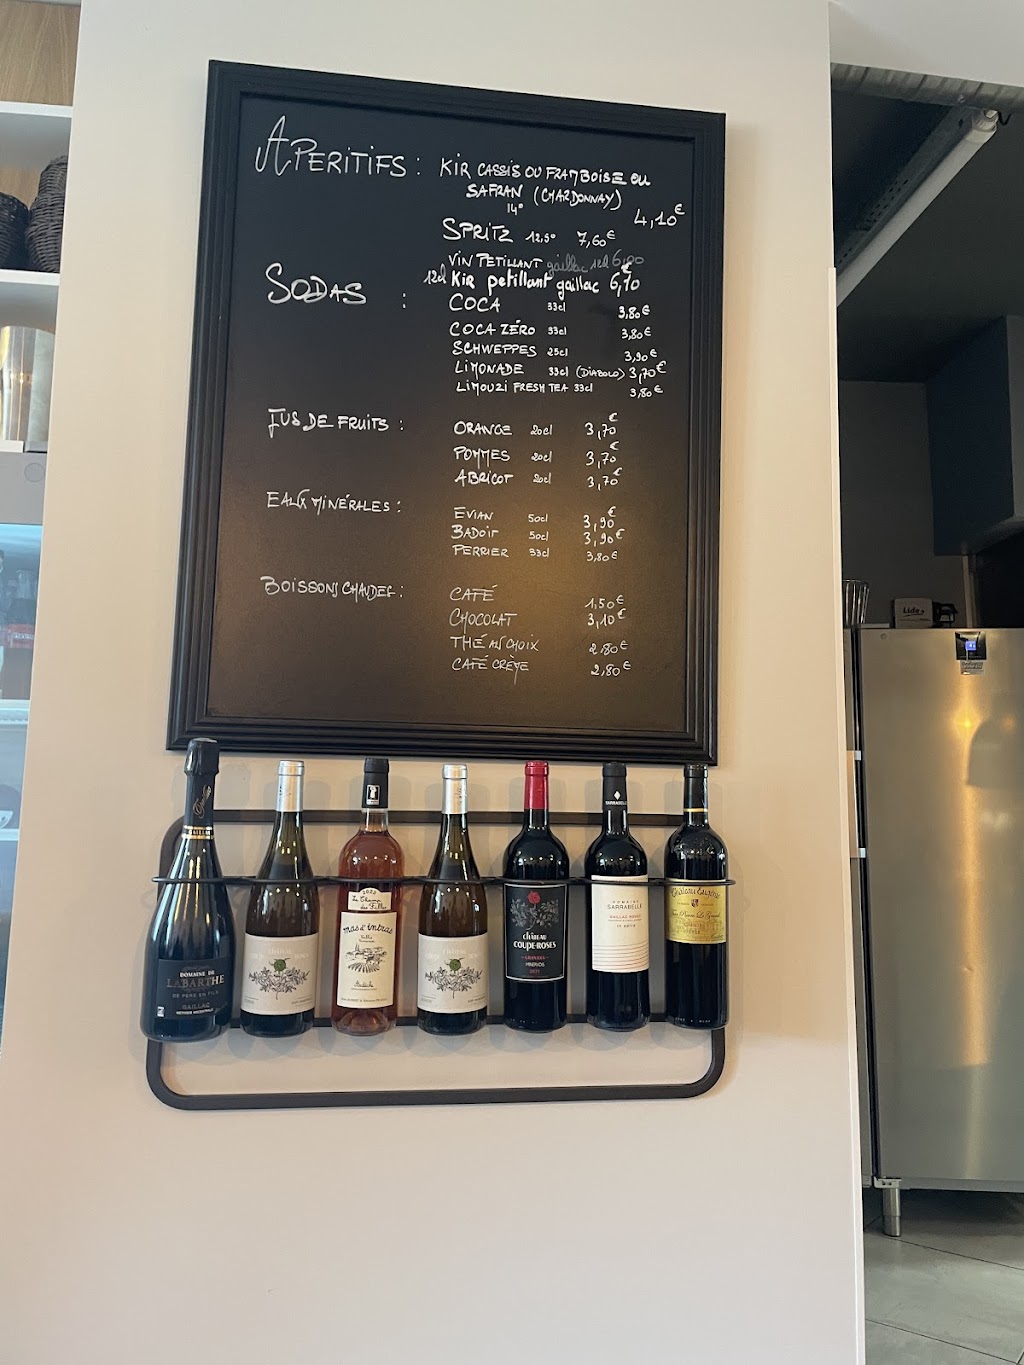 APERITIFS : KIR CASSIS OU FRAMBOISE OU
SAFRAN (CHARDONNAY)
14° 4,10€
SPRITZ 12,5° 7,60€
VIN PETILLANT gaillac 12cl 6,00
12cl Kir petillant gaillac 6,70€
SODAS : COCA 33cl 3,80€
COCA ZÉRO 33cl 3,80€
SCHWEPPES 25cl 3,90€
LIMONADE 33cl (DIABOLO) 3,70€
LIMOUZI FRESH TEA 33cl 3,80€
JUS DE FRUITS : ORANGE 20cl 3,70€
POMMES 20cl 3,70€
ABRICOT 20cl 3,70€
EAUX MINÉRALES : EVIAN 50cl 3,90€
BADOIT 50cl 3,90€
PERRIER 33cl 3,80€
BOISSONS CHAUDES : CAFÉ 1,50€
CHOCOLAT 3,10€
THÉ AU CHOIX 2,80€
CAFÉ CRÈME 2,80€
DOMAINE DE
LABARTHE
DE PÈRE EN FILS
GAILLAC
CHÂTEAU
2022
Le Champ
des Filles
mas d'intras
CHÂTEAU
CHÂTEAU
COUPE-ROSES
MINERVOIS
SARRABELLE
DOMAINE
SARRABELLE
GAILLAC ROUGE